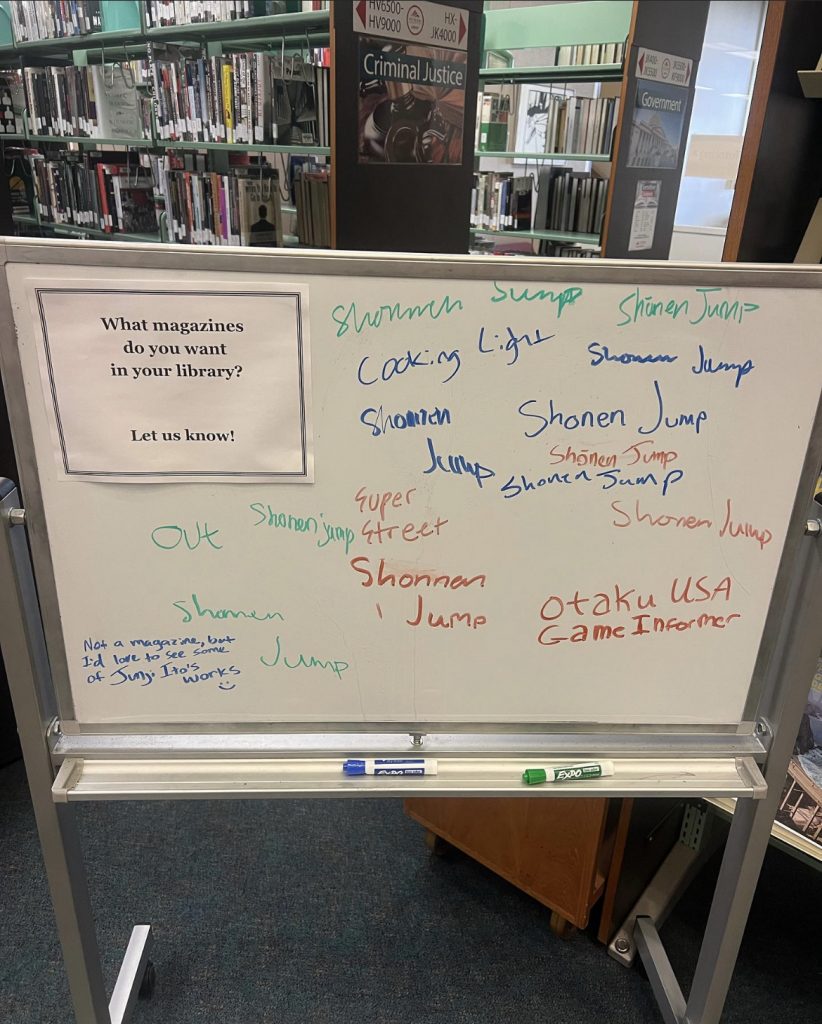 HV6500-
HV9000
HX-
JK4000
Criminal Justice
Government
What magazines
do you want
in your library?
Let us know!
Shonnen Jump
Shōnen Jump
Cooking Light
Shonen Jump
Shonnen
Jump
Shonen Jump
Shōnen Jump
Shonen Jump
Super
Street
Shonen Jump
Out
Shonen jump
Shonnan
Jump
Otaku USA
Game Informer
Shonnen
Jump
Not a magazine, but
I'd love to see some
of Junji Ito's
works
EXPO
EXPO